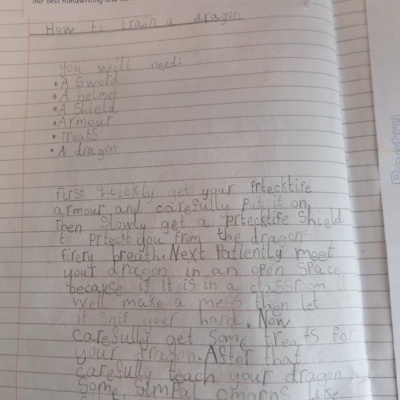 our best handwriting and
How to train a dragon
You will need:
• A sword
• A helmet
• A shield
• Armour
• Treats
• A dragon
First quickly get your Prtecktife
armour and carefully put it on,
Then slowly get a prtecktife shield
to Prtect you from the dragons
firey breath. Next Patiently meet
your dragon in an open space
because if it is in a classroom it
well make a mess then let
it snif your hard. Now
carefully get some treats for
your dragon. Aftor that
carefully teach your dragon
some simpal cmarns like